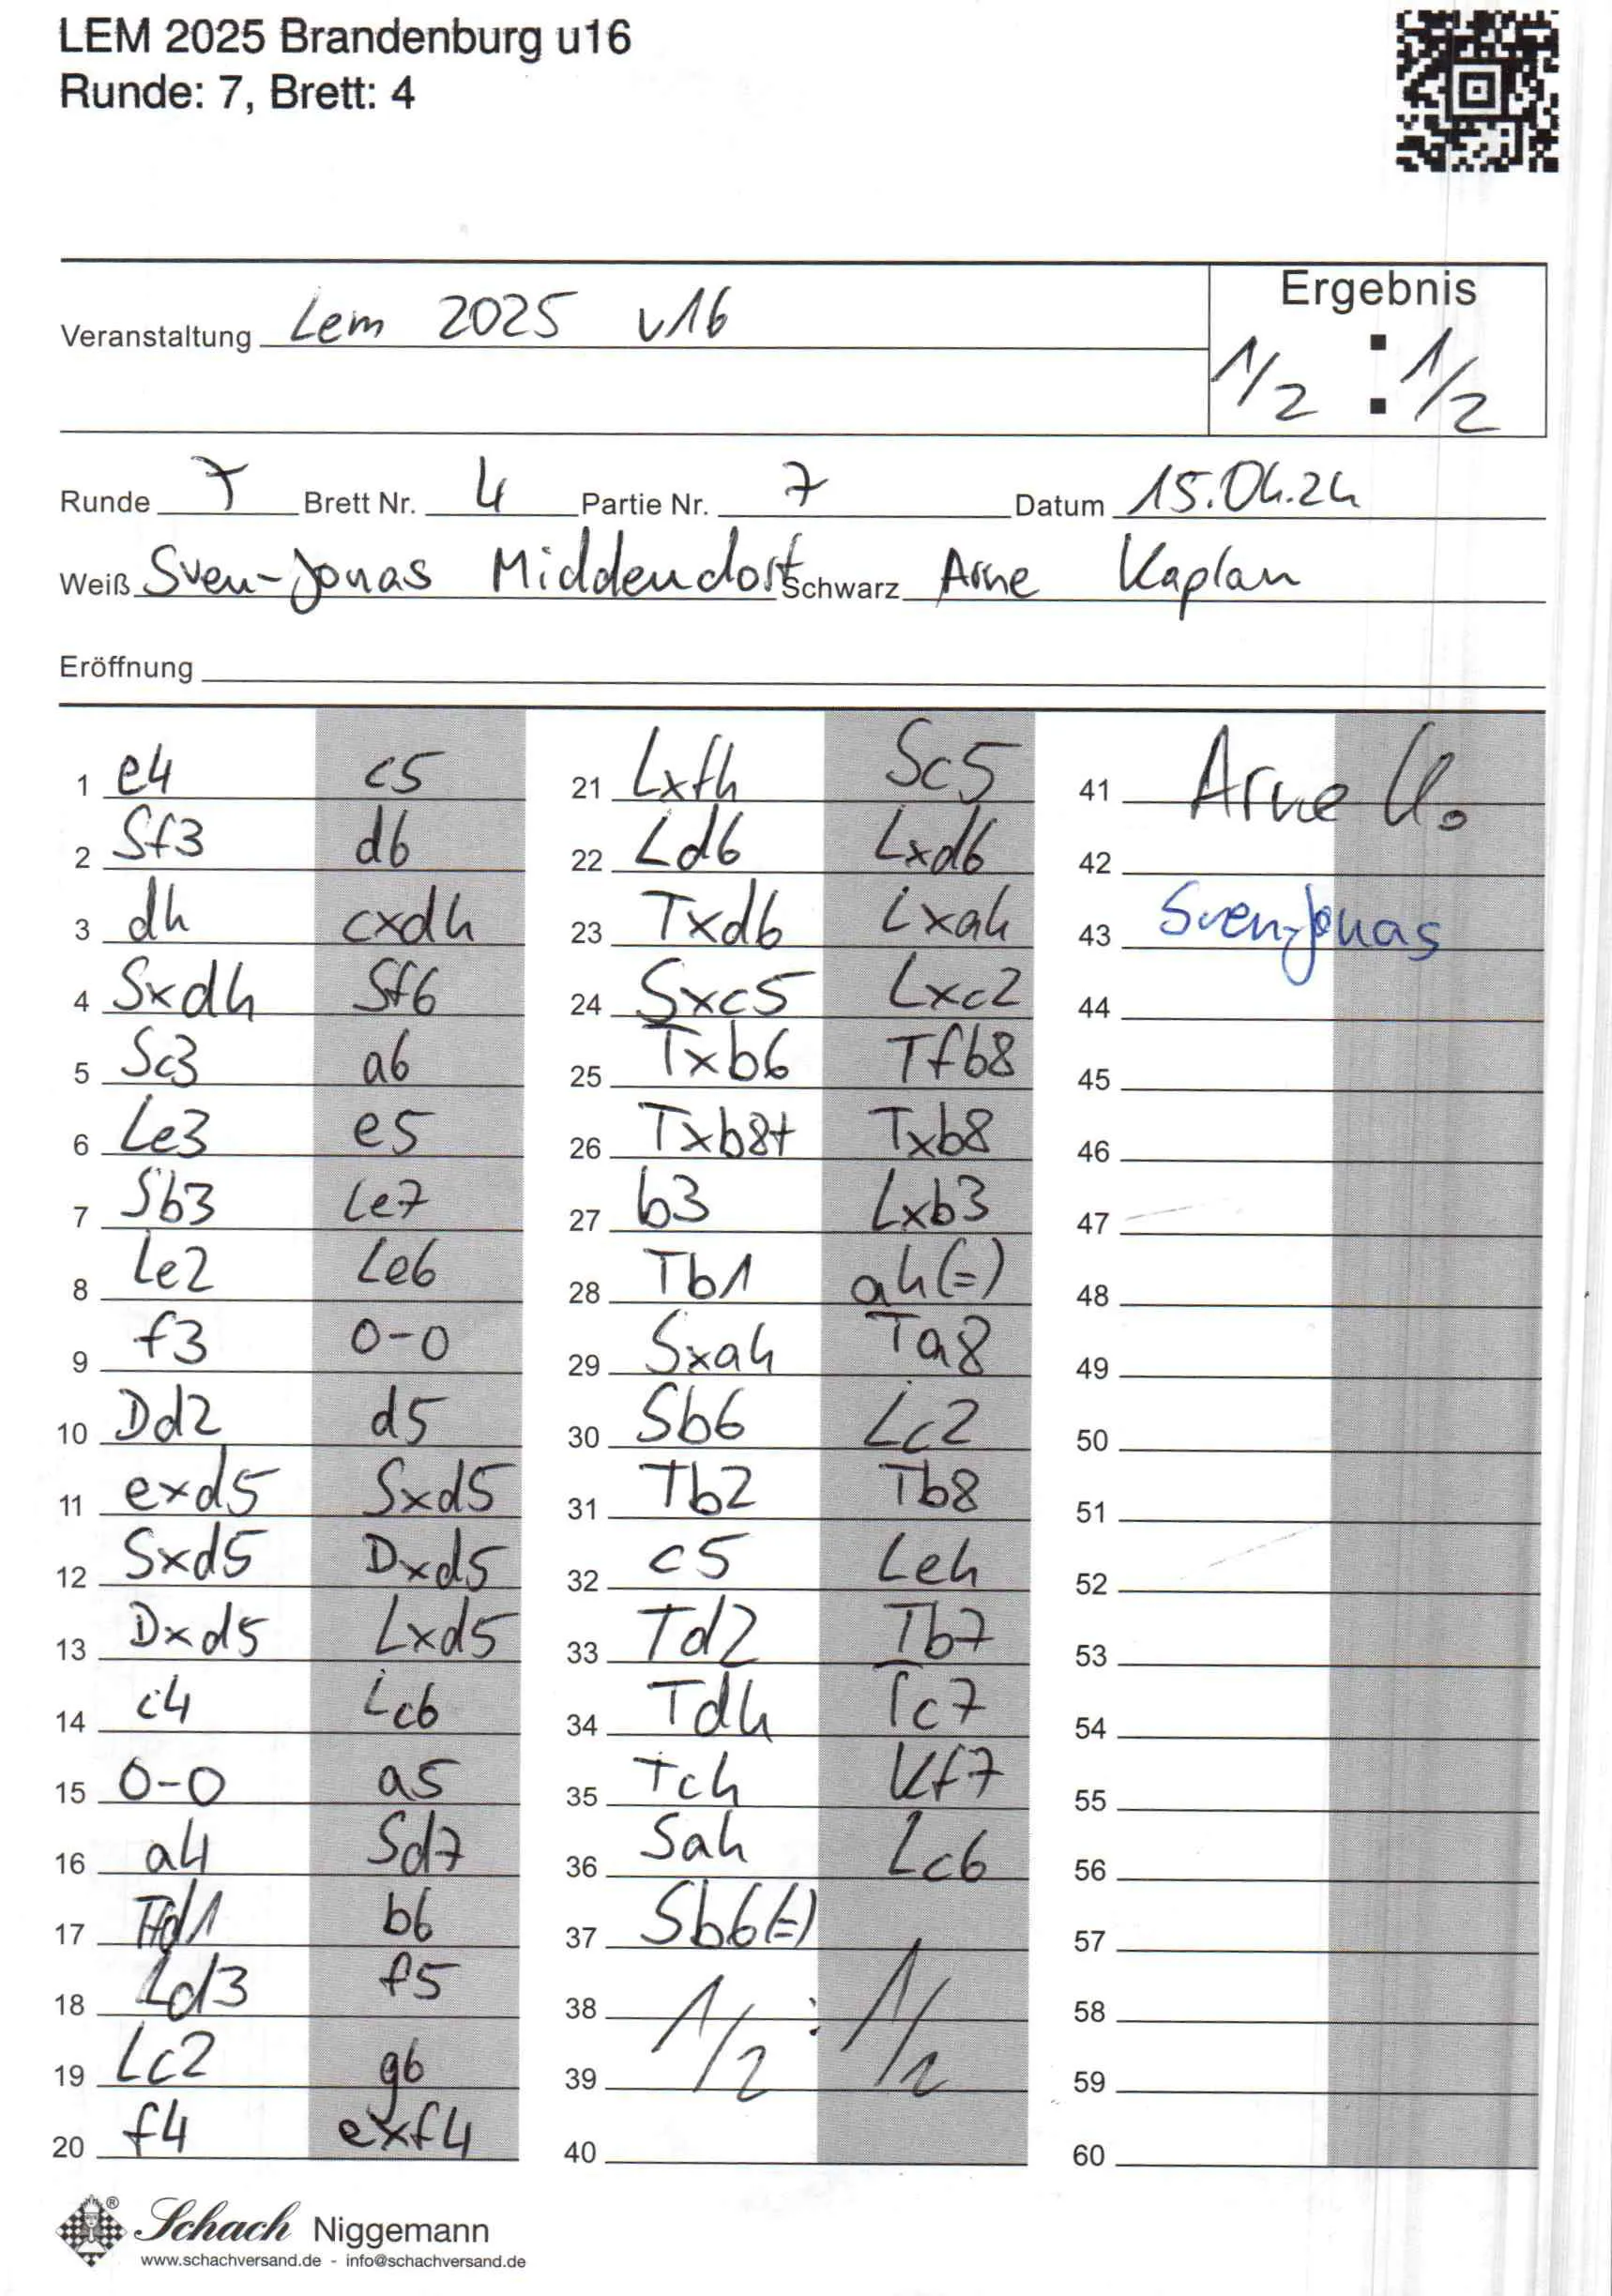 LEM 2025 Brandenburg u16
Runde: 7, Brett: 4
Ergebnis
Veranstaltung Lem 2025 u16
1/2 : 1/2
Runde 7 Brett Nr. 4 Partie Nr. 7 Datum 15.04.24
Weiß Sven-Jonas Middendorf Schwarz Arne Kaplan
Eröffnung
1 e4 c5
2 Sf3 d6
3 d4 cxd4
4 Sxd4 Sf6
5 Sc3 a6
6 Le3 e5
7 Sb3 Le7
8 Le2 Le6
9 f3 0-0
10 Dd2 d5
11 exd5 Sxd5
12 Sxd5 Dxd5
13 Dxd5 Lxd5
14 c4 Lc6
15 0-0 a5
16 a4 Sd7
17 Tfd1 b6
18 Ld3 f5
19 Lc2 g6
20 f4 exf4
21 Lxf4 Sc5
22 Ld6 Lxd6
23 Txd6 Lxa4
24 Sxc5 Lxc2
25 Txb6 Tfb8
26 Txb8+ Txb8
27 b3 Lxb3
28 Tb1 a4(=)
29 Sxa4 Ta8
30 Sb6 Lc2
31 Tb2 Tb8
32 c5 Le4
33 Td2 Tb7
34 Td4 Tc7
35 Tc4 Kf7
36 Sa4 Lc6
37 Sb6(=)
38 1/2 : 1/2
39
40
41 Arne K.
42
43 Sven-Jonas
44
45
46
47
48
49
50
51
52
53
54
55
56
57
58
59
60
Schach Niggemann
www.schachversand.de - info@schachversand.de